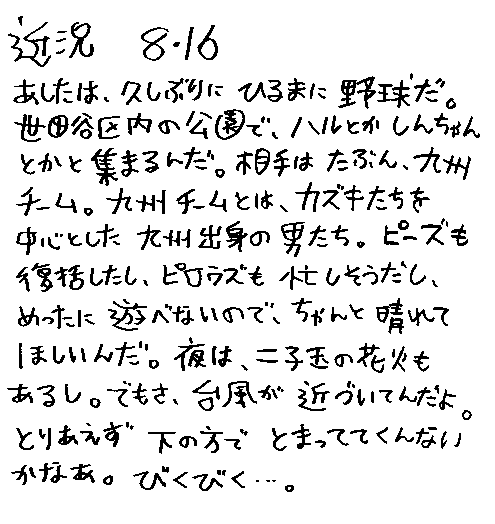 近況 8.16
あしたは、久しぶりに ひるまに 野球だ。
世田谷区内の公園で、ハルとか しんちゃん
とかと集まるんだ。相手は たぶん、九州
チーム。九州チームとは、カズキたちを
中心とした 九州出身の男たち。ピーズも
復活したし、ピロウズも 忙しそうだし、
めったに 遊べないので、ちゃんと 晴れて
ほしいんだ。夜は、二子玉の花火も
あるし。でもさ、台風が 近づいてんだよ。
とりあえず 下の方で とまっててくんない
かなあ。びくびく…。